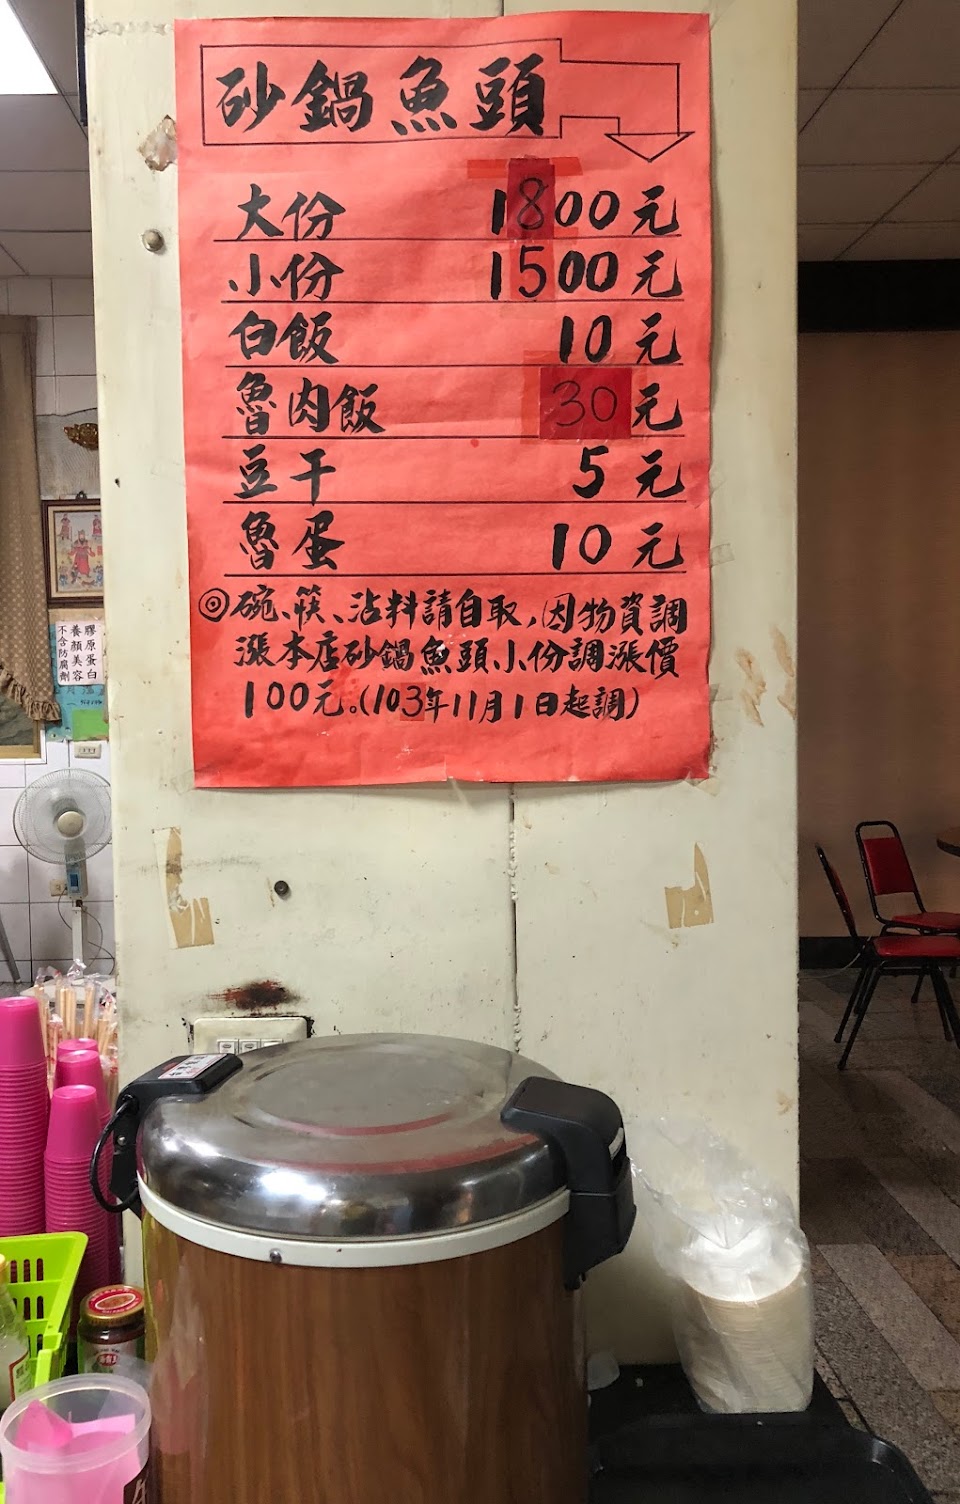 砂鍋魚頭
大份 1800元
小份 1500元
白飯 10元
魯肉飯 30元
豆干 5元
魯蛋 10元
◎碗、筷、沾料請自取，因物資調
漲本店砂鍋魚頭小份調漲價
100元。(103年11月1日起調)
膠原蛋白
養顏美容
不含防腐劑